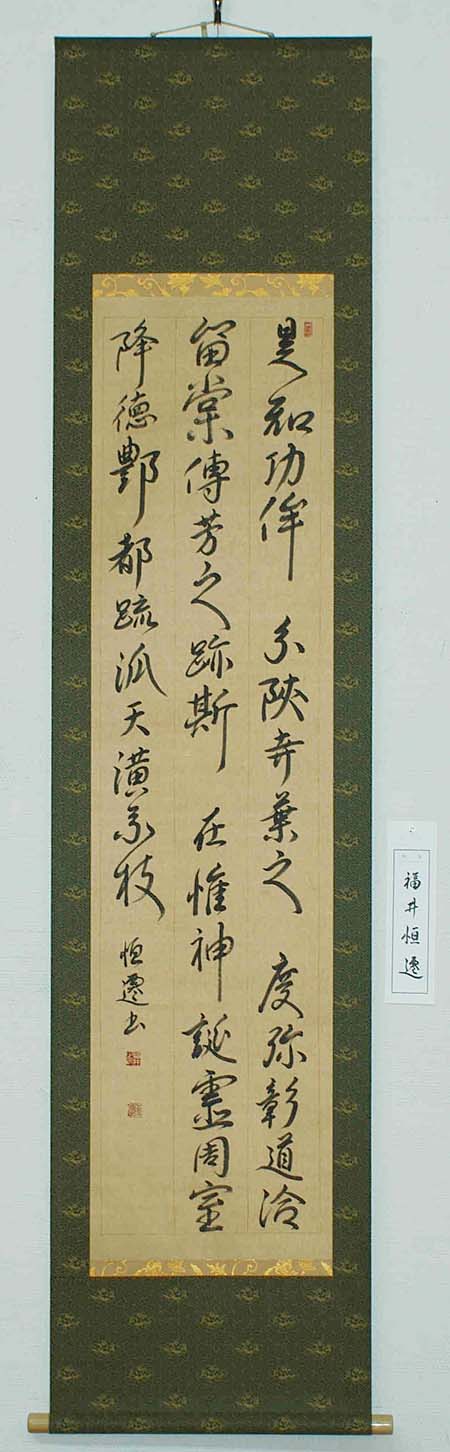 是知功侔分陝奕葉之慶弥彰道洽
留棠傳芳之跡斯在惟神誕靈周室
降德酆都疏派天潢分枝 恒遷書
福井恒遷